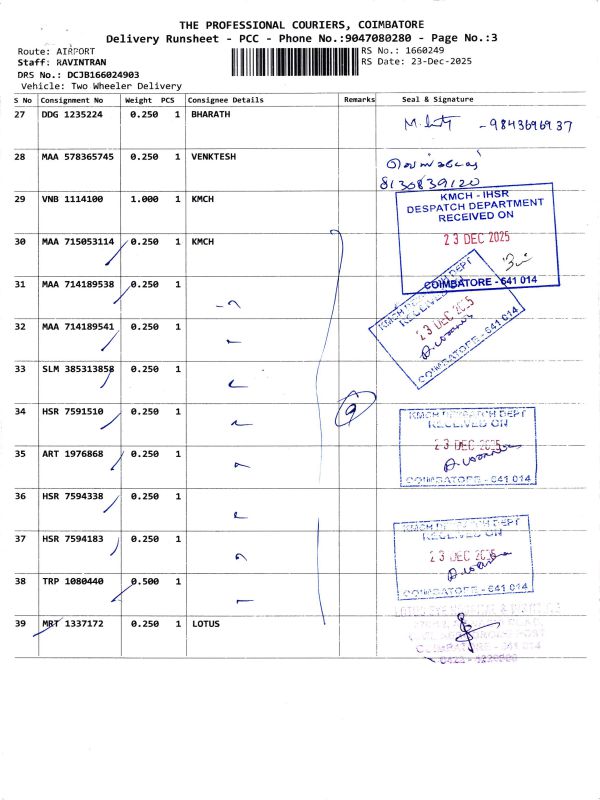 THE PROFESSIONAL COURIERS, COIMBATORE
Delivery Runsheet - PCC - Phone No.:9047080280 - Page No.:3
Route: AIRPORT
RS No.: 1660249
Staff: RAVINTRAN
RS Date: 23-Dec-2025
DRS No.: DCJB166024903
Vehicle: Two Wheeler Delivery
S No Consignment No Weight PCS Consignee Details Remarks Seal & Signature
27 DDG 1235224 0.250 1 BHARATH
9843696937
28 MAA 578365745 0.250 1 VENKTESH
8130839120
29 VNB 1114100 1.000 1 KMCH
KMCH - IHSR
DESPATCH DEPARTMENT
RECEIVED ON
23 DEC 2025
COIMBATORE - 641 014
30 MAA 715053114 0.250 1 KMCH
31 MAA 714189538 0.250 1
KMCH DESPATCH DEPT
RECEIVED ON
23 DEC 2025
COIMBATORE - 641 014
32 MAA 714189541 0.250 1
33 SLM 385313858 0.250 1
34 HSR 7591510 0.250 1
9
KMCH DESPATCH DEPT
RECEIVED ON
23 DEC 2025
COIMBATORE - 641 014
35 ART 1976868 0.250 1
36 HSR 7594338 0.250 1
37 HSR 7594183 0.250 1
KMCH DESPATCH DEPT
RECEIVED ON
23 DEC 2025
COIMBATORE - 641 014
38 TRP 1080440 0.500 1
39 MRT 1337172 0.250 1 LOTUS
LOTUS EYE HOSPITAL & INSTITUTE
COIMBATORE - 641 014